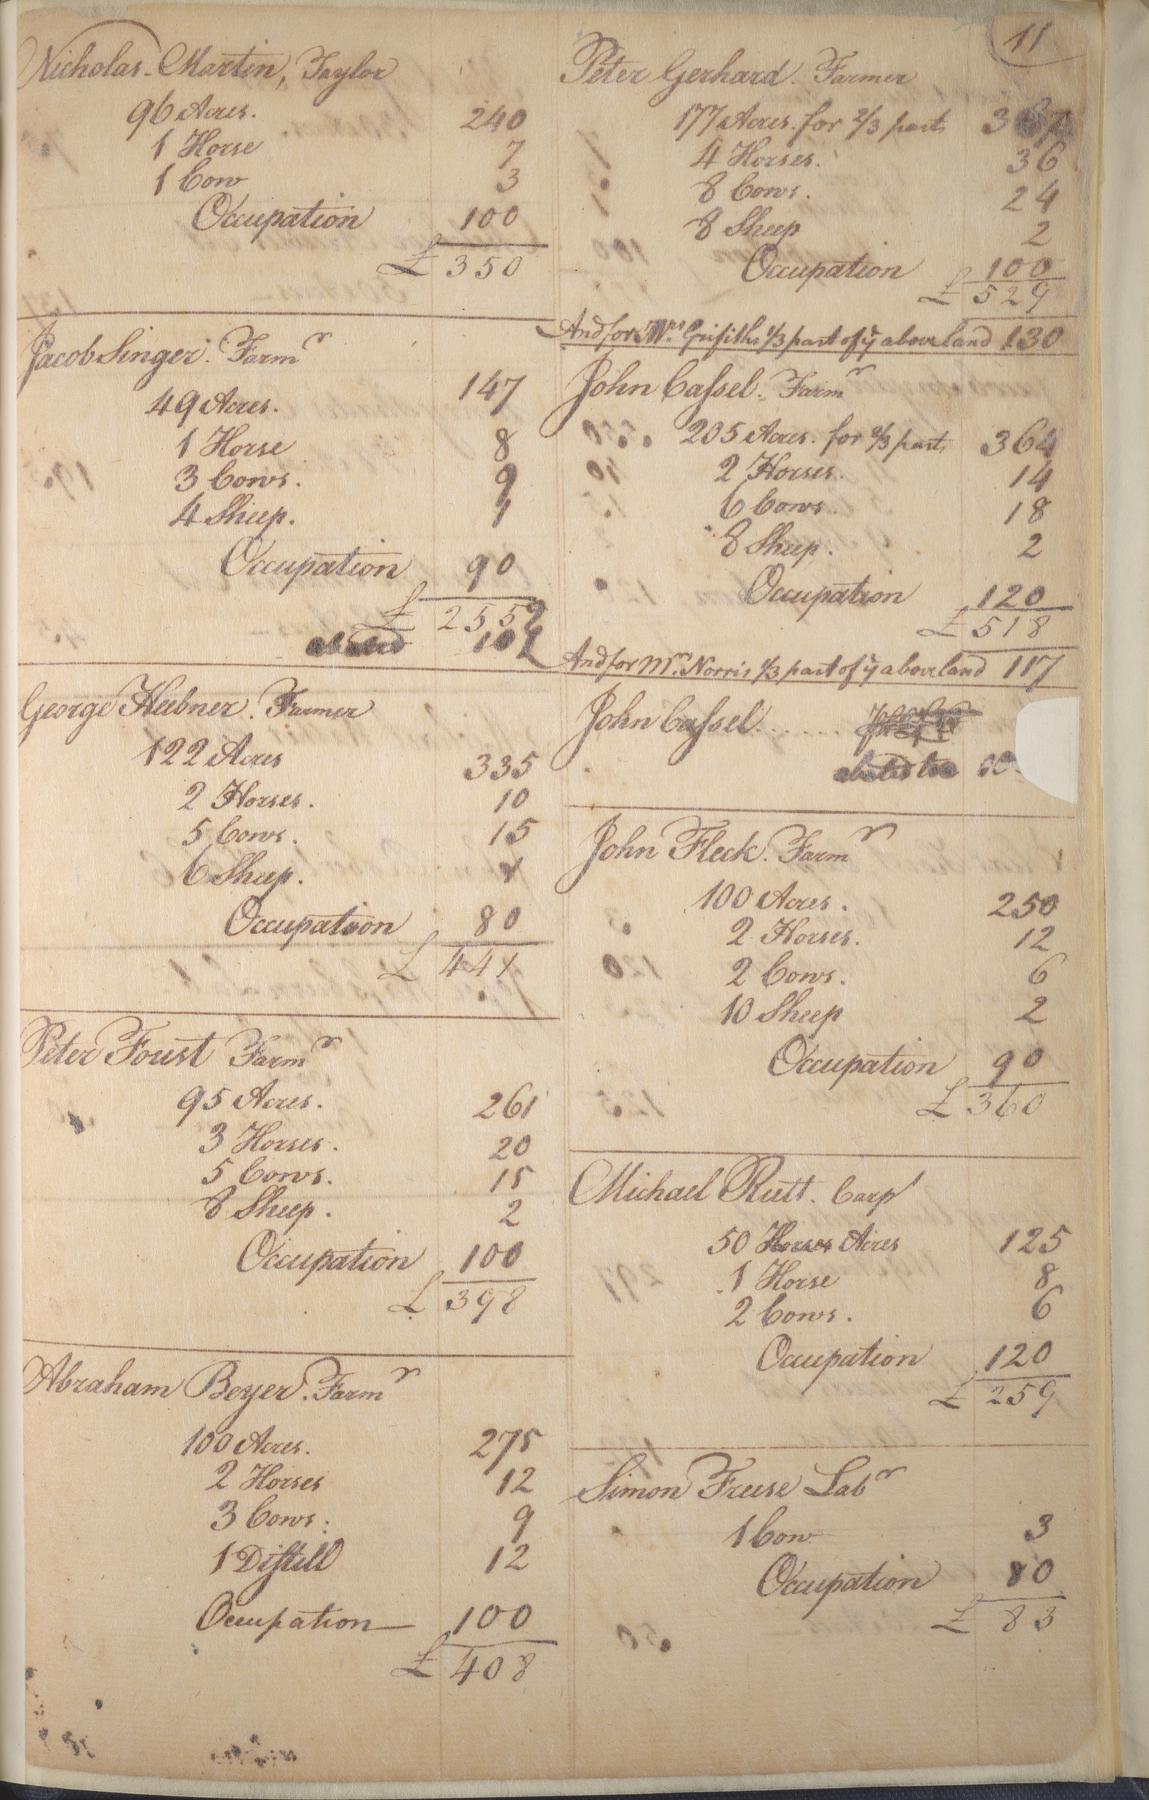 11
Nicholas Martin, Taylor
96 Acres. 240
1 Horse 7
1 Cow 3
Occupation 100
£ 350
Jacob Singer. Farmr
49 Acres. 147
1 Horse 8
3 Cows. 9
4 Sheep. 1
Occupation 90
£ 255
George Heebner. Farmer
122 Acres 335
2 Horses. 10
5 Cows. 15
6 Sheep. 1
Occupation 80
£ 441
Peter Foust Farmr
95 Acres. 261
3 Horses. 20
5 Cows. 15
8 Sheep. 2
Occupation 100
£ 398
Abraham Beyer. Farmr
100 Acres. 275
2 Horses 12
3 Cows. 9
1 Distill 12
Occupation 100
£ 408
Peter Gerhard. Farmer
177 Acres. for 2/3 parts
4 Horses. 36
8 Cows. 24
8 Sheep 2
Occupation 100
£ 529
And for Mrs. Grifiths 1/3 part of ye above land 130
John Cassel. Farmr
205 Acres. for 2/3 parts 364
2 Horses. 14
6 Cows. 18
8 Sheep. 2
Occupation 120
£ 518
And for Mr. Norris 1/3 part of ye above land 117
John Cassel
John Fleck. Farmr
100 Acres. 250
2 Horses. 12
2 Cows. 6
10 Sheep 2
Occupation 90
£ 360
Michael Rutt. Carpr
50 Horses Acres 125
1 Horse 8
2 Cows. 6
Occupation 120
£ 259
Simon Freese Labr
1 Cow 3
Occupation 80
£ 83